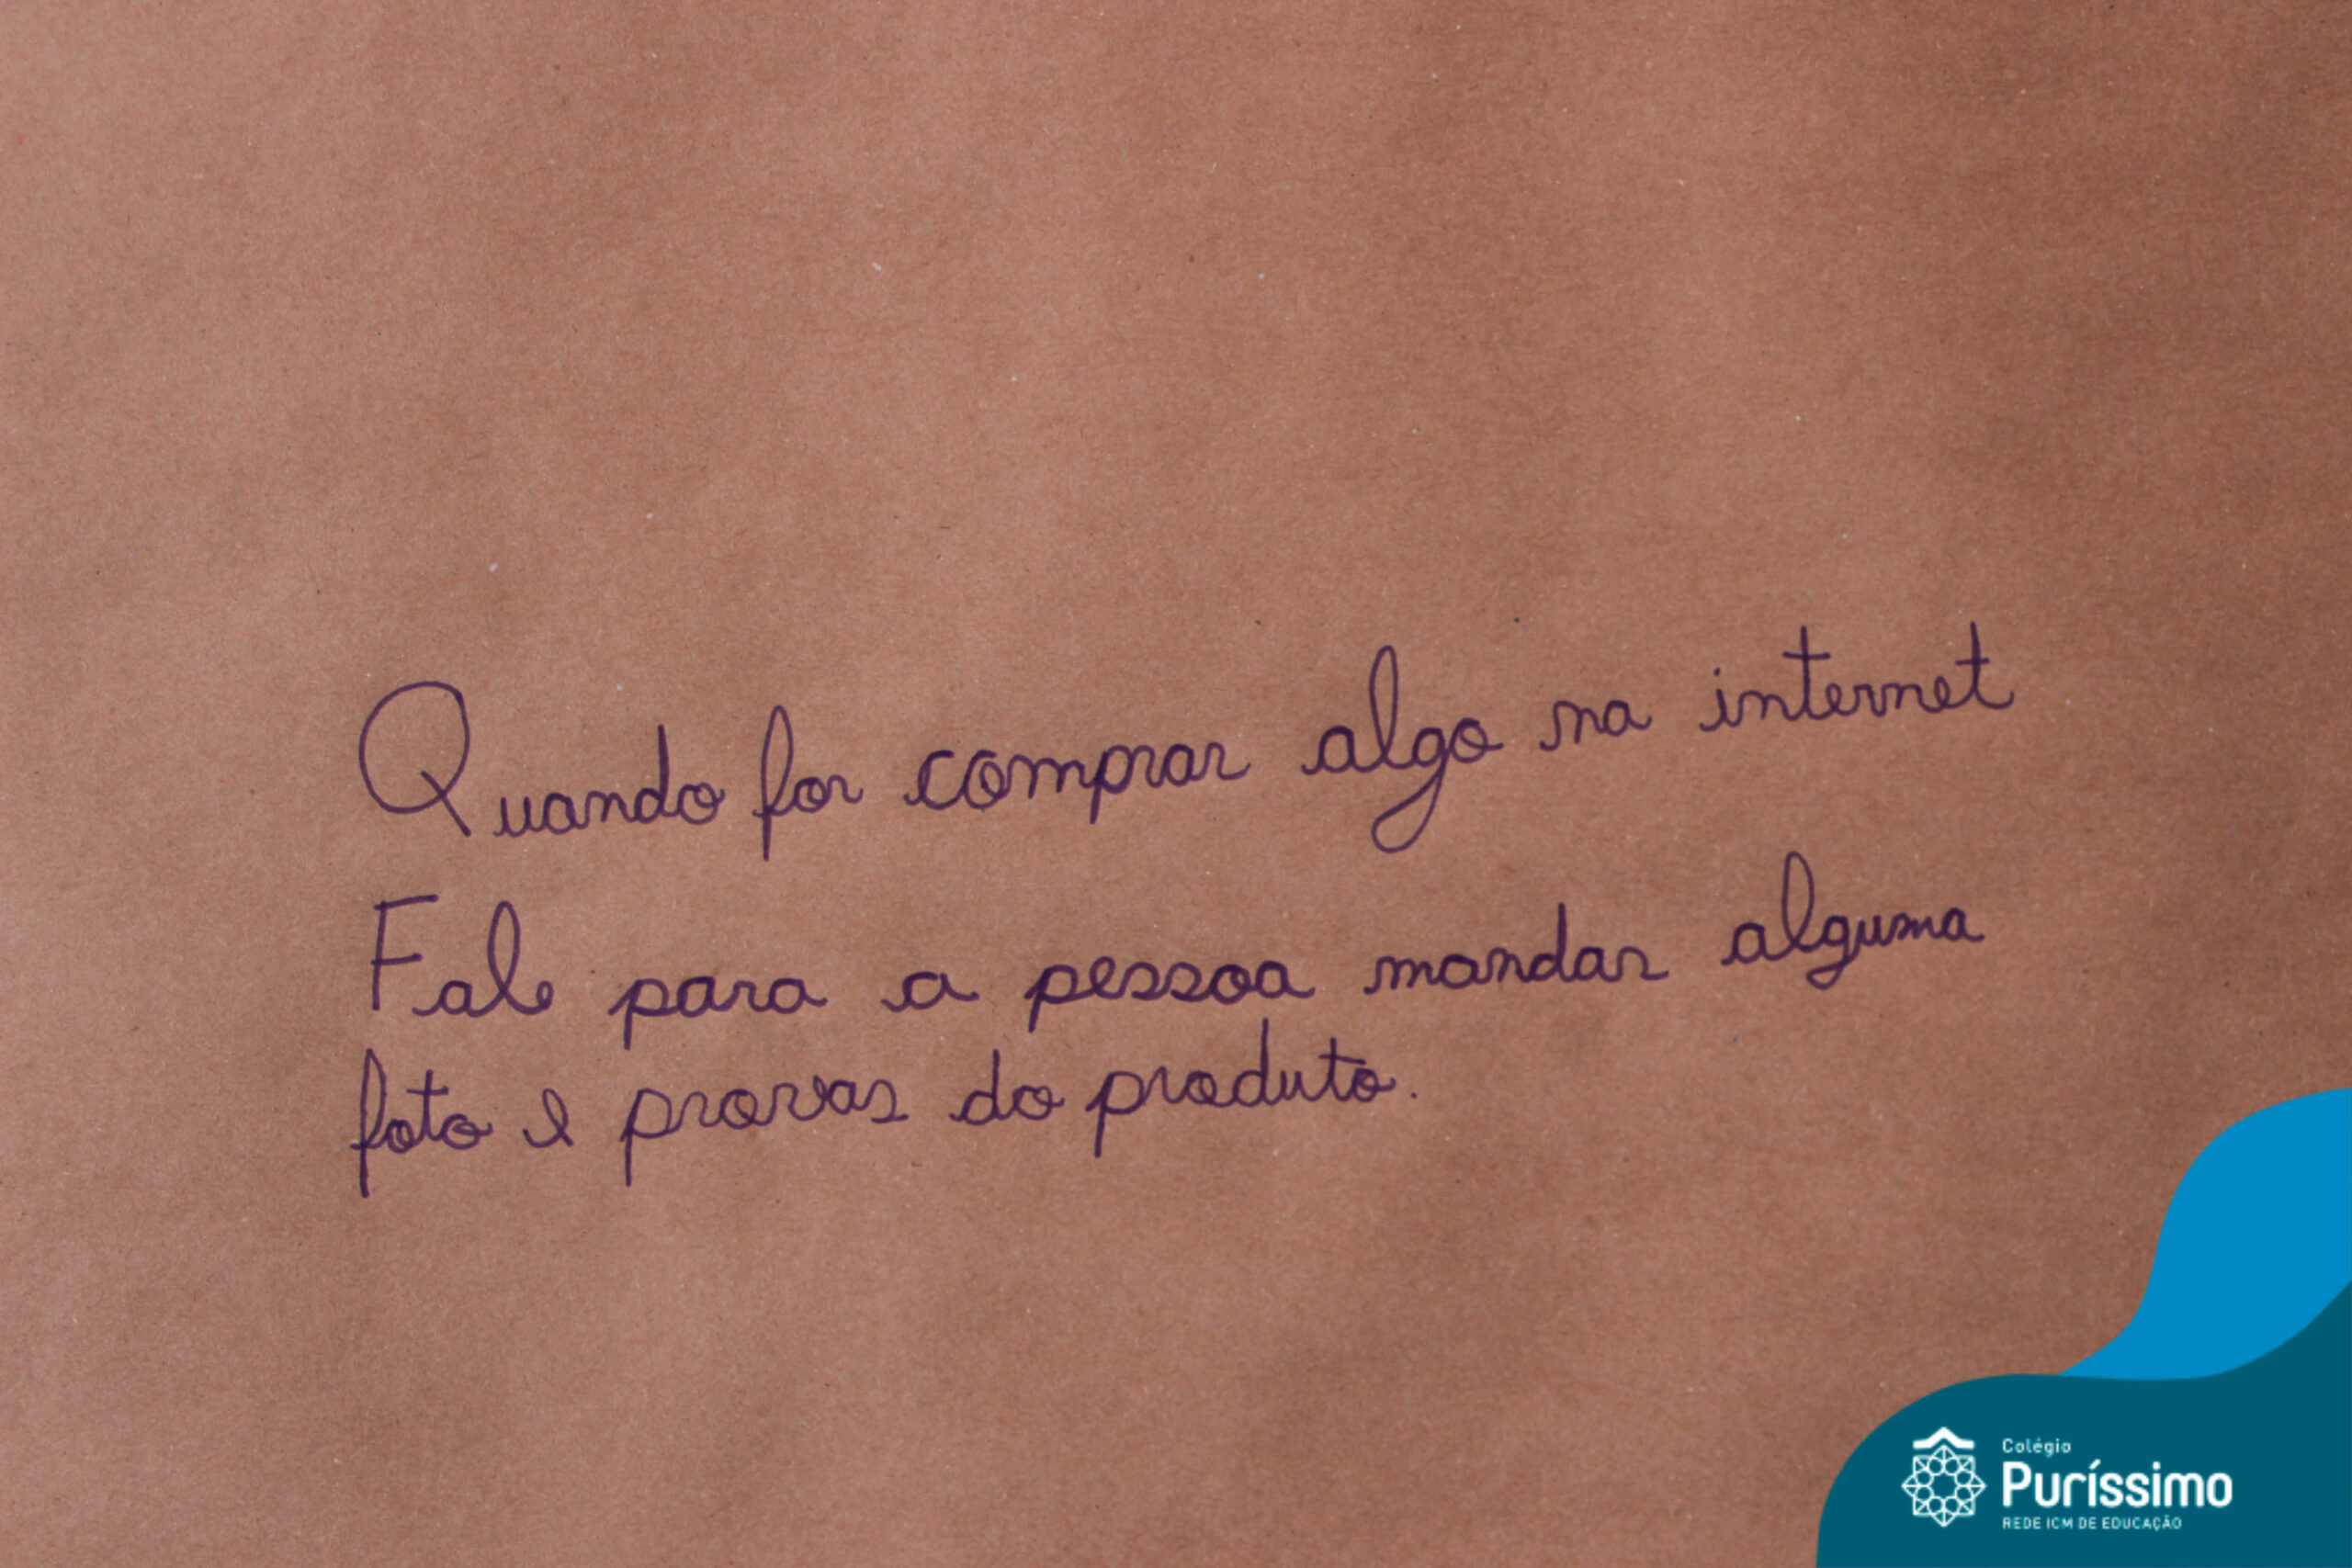 Quando for comprar algo na internet
Fale para a pessoa mandar alguma
foto e provas do produto.
Colégio
Puríssimo
REDE ICM DE EDUCAÇÃO